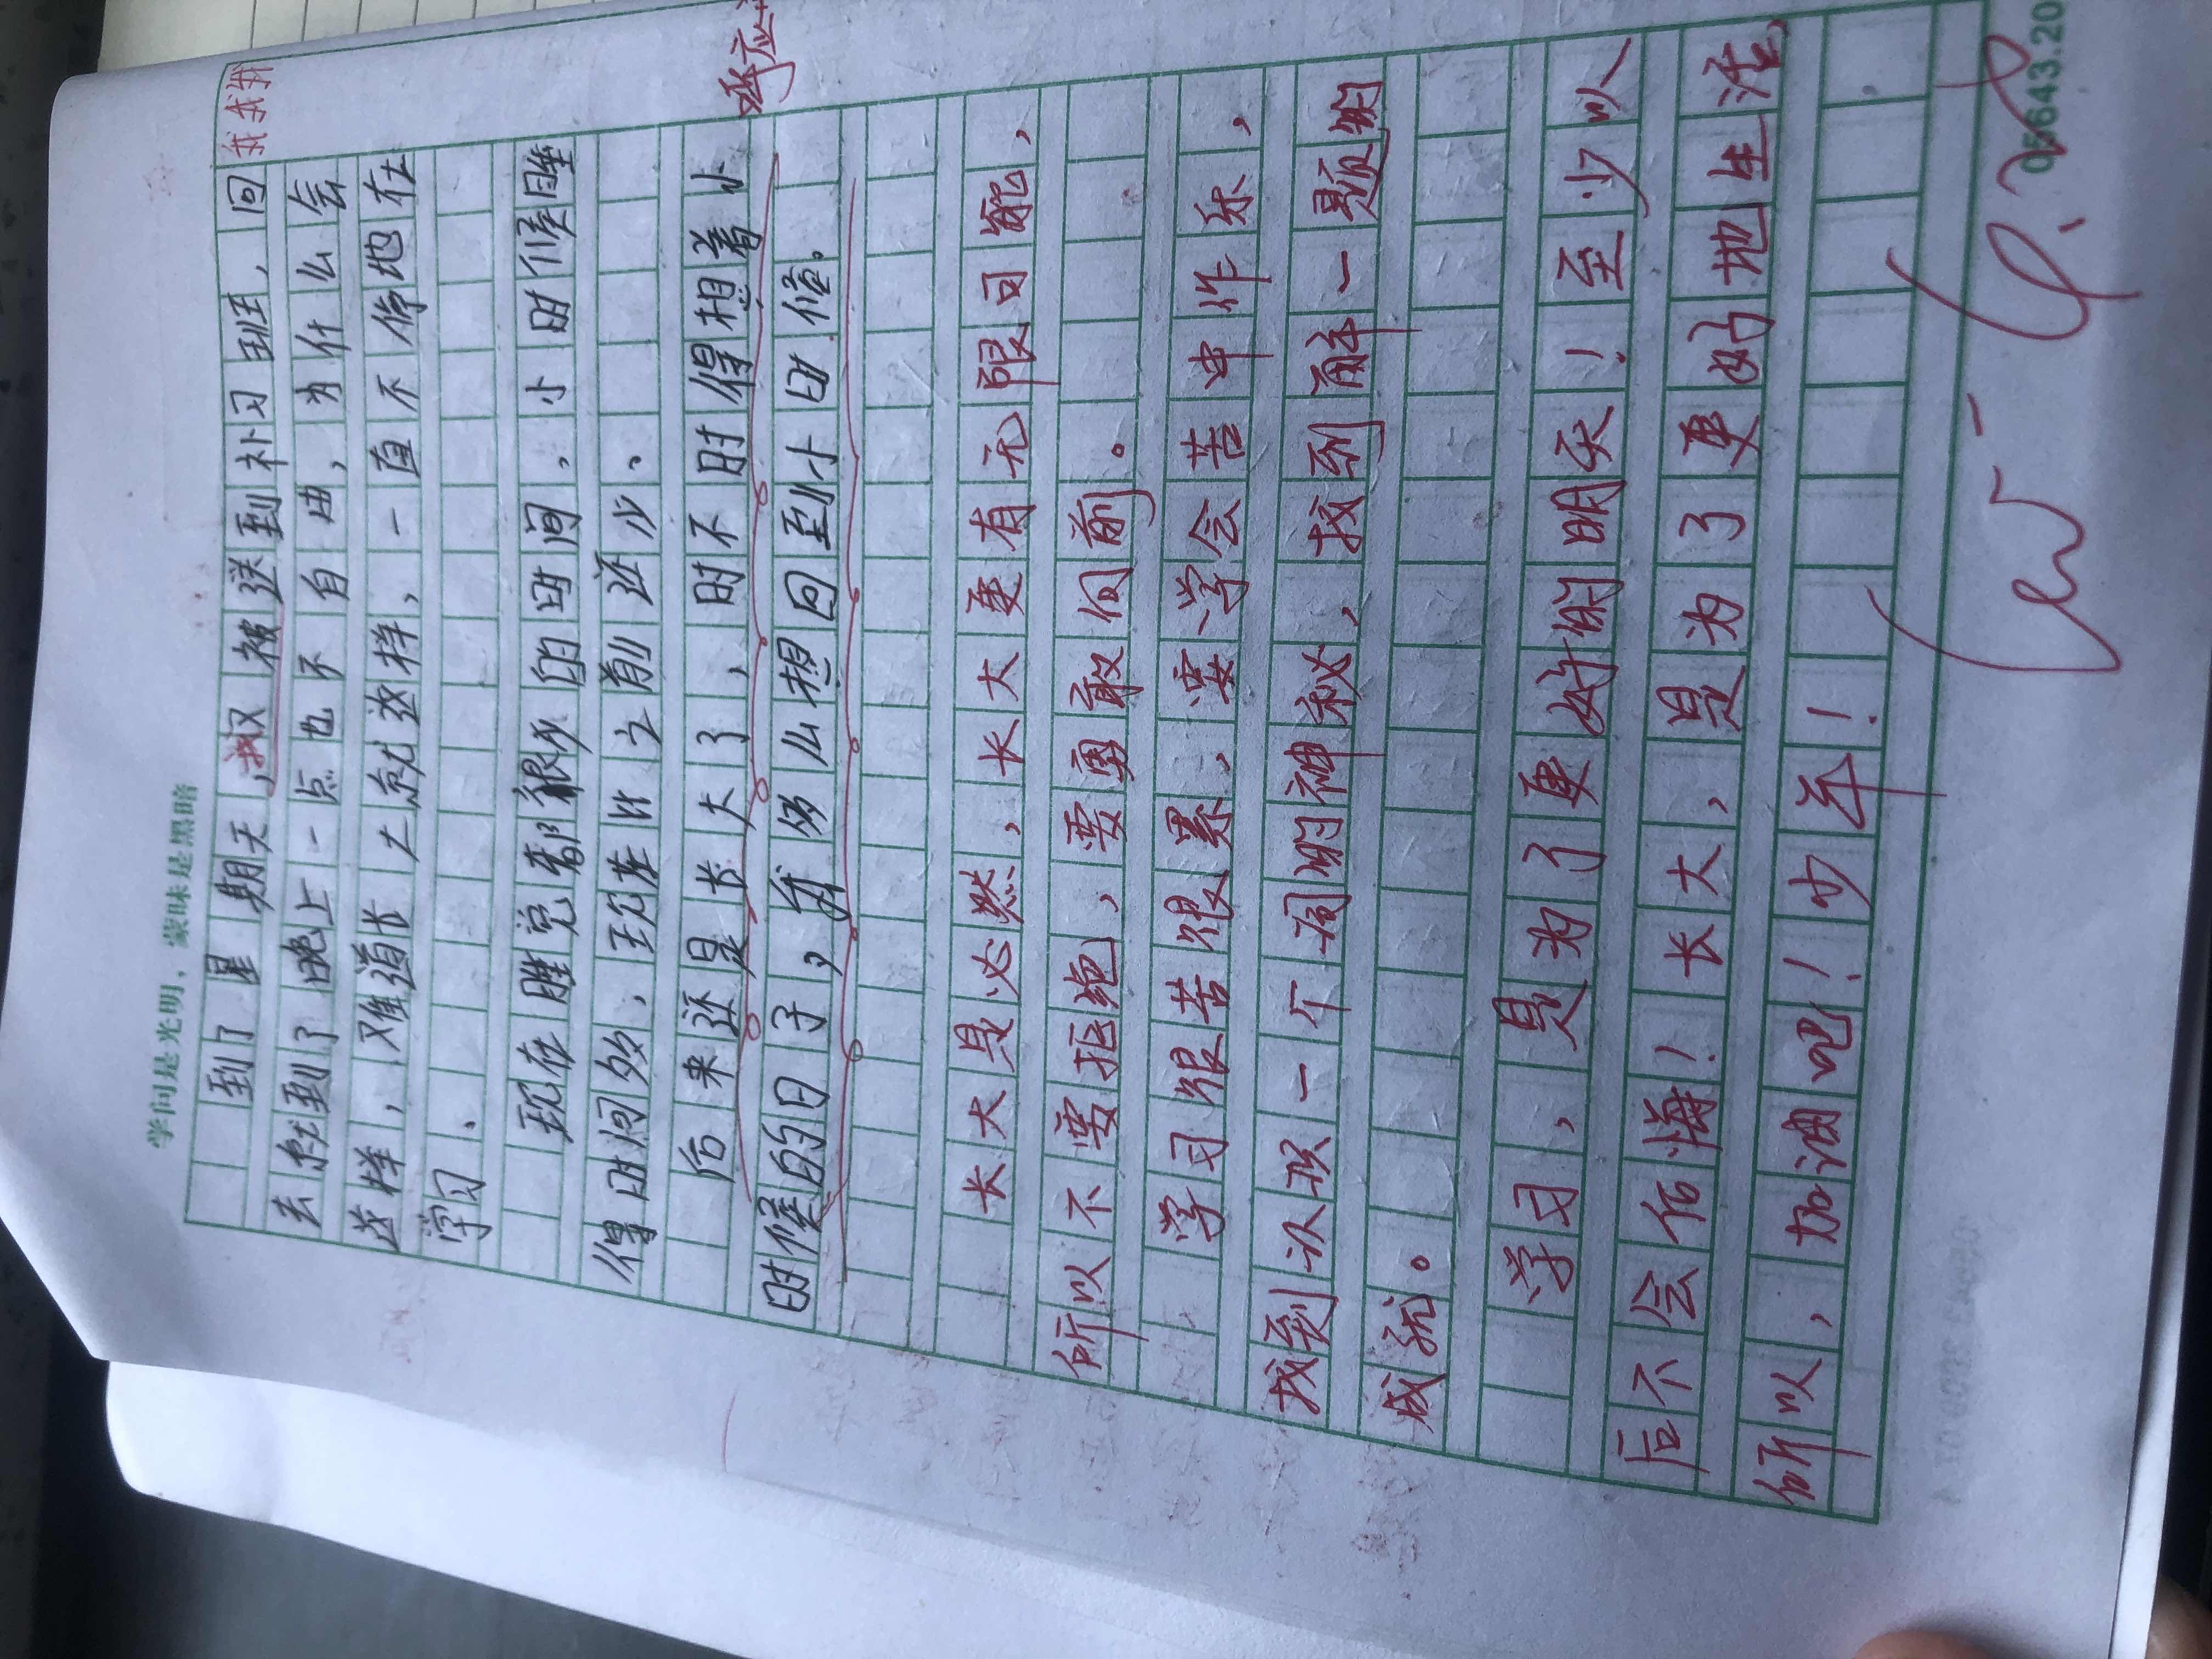 学问是光明，蒙昧是黑暗
我我我
到了星期天，我被送到补习班，回
去就到了晚上一点也不自由，为什么会
这样，难道长大就这样，一直不停地在
学习、
现在睡觉都很少的时间，小时候睡
得时间多，现在比之前还少、
后来还是长大了，时不时得想着小
呼应
时候的日子，我多么想回到小时候。
长大是必然，长大更有无限可能，
所以不要拒绝，要勇敢向前。
学习很苦很累，要学会苦中作乐，
找到认识一个词的神秘，找到解一题的
成就。
学习，是为了更好的明天！至少以
后不会后悔！长大，是为了更好地生活，
所以，加油吧！少年！
05643.20